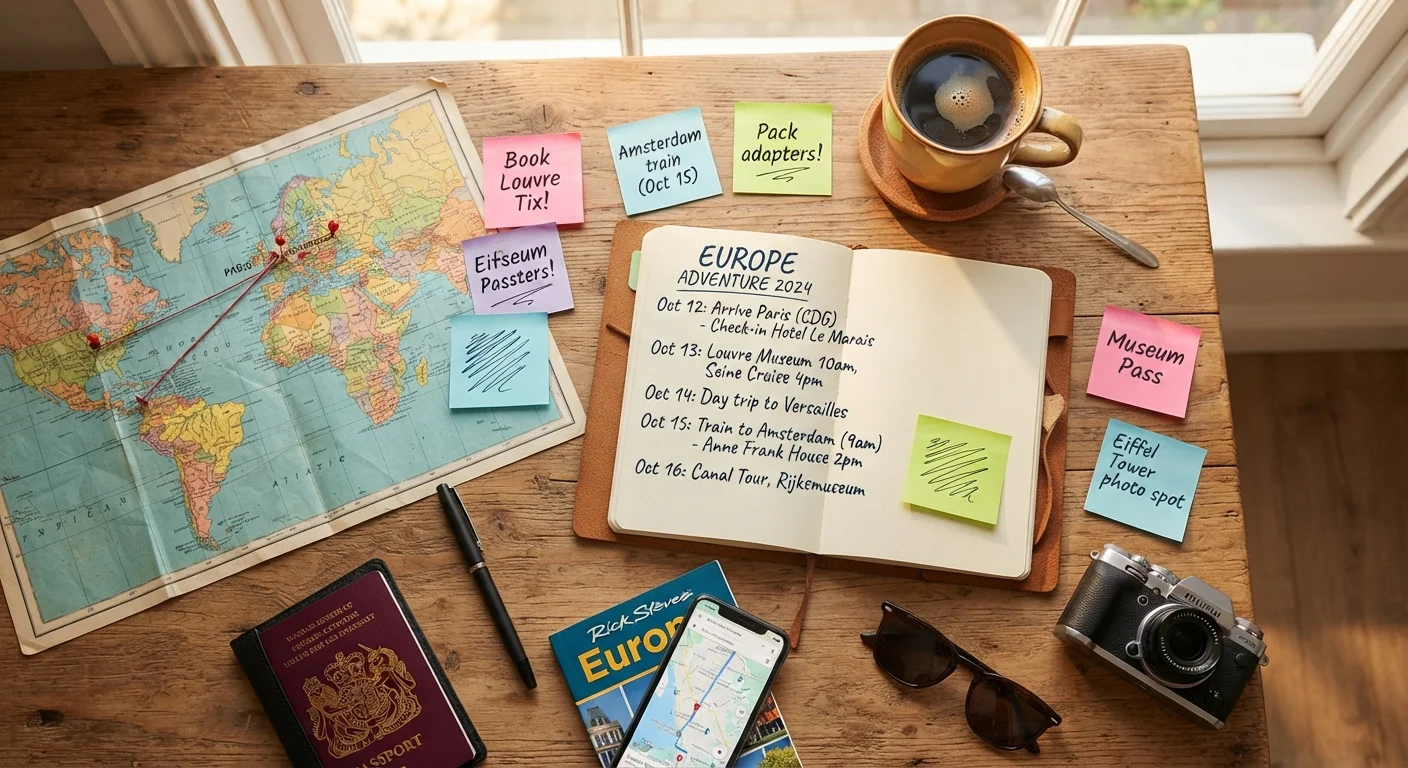 Book
Louvre
Tix!
Amsterdam
train
(Oct 15)
Pack
adapters!
Eifseum
Passters!
EUROPE
ADVENTURE 2024
Oct 12: Arrive Paris (CDG)
- Check-in Hotel Le Marais
Oct 13: Louvre Museum 10am,
Seine Cruise 4pm
Oct 14: Day trip to Versailles
Oct 15: Train to Amsterdam (9am)
- Anne Frank House 2pm
Oct 16: Canal Tour, Rijksmuseum
Museum
Pass
Eiffel
Tower
photo spot
Rick Steves
Europ